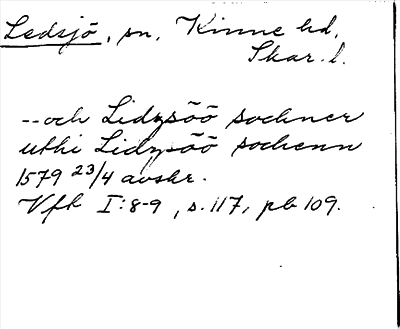 Ledsjö, sn, Kinne hd,
Skar. l.
--och Lidzsöö sochner
uthi Lidzsöö sochenn
1579 23/4 avskr.
Vfk I:8-9, s. 117, pb 109.